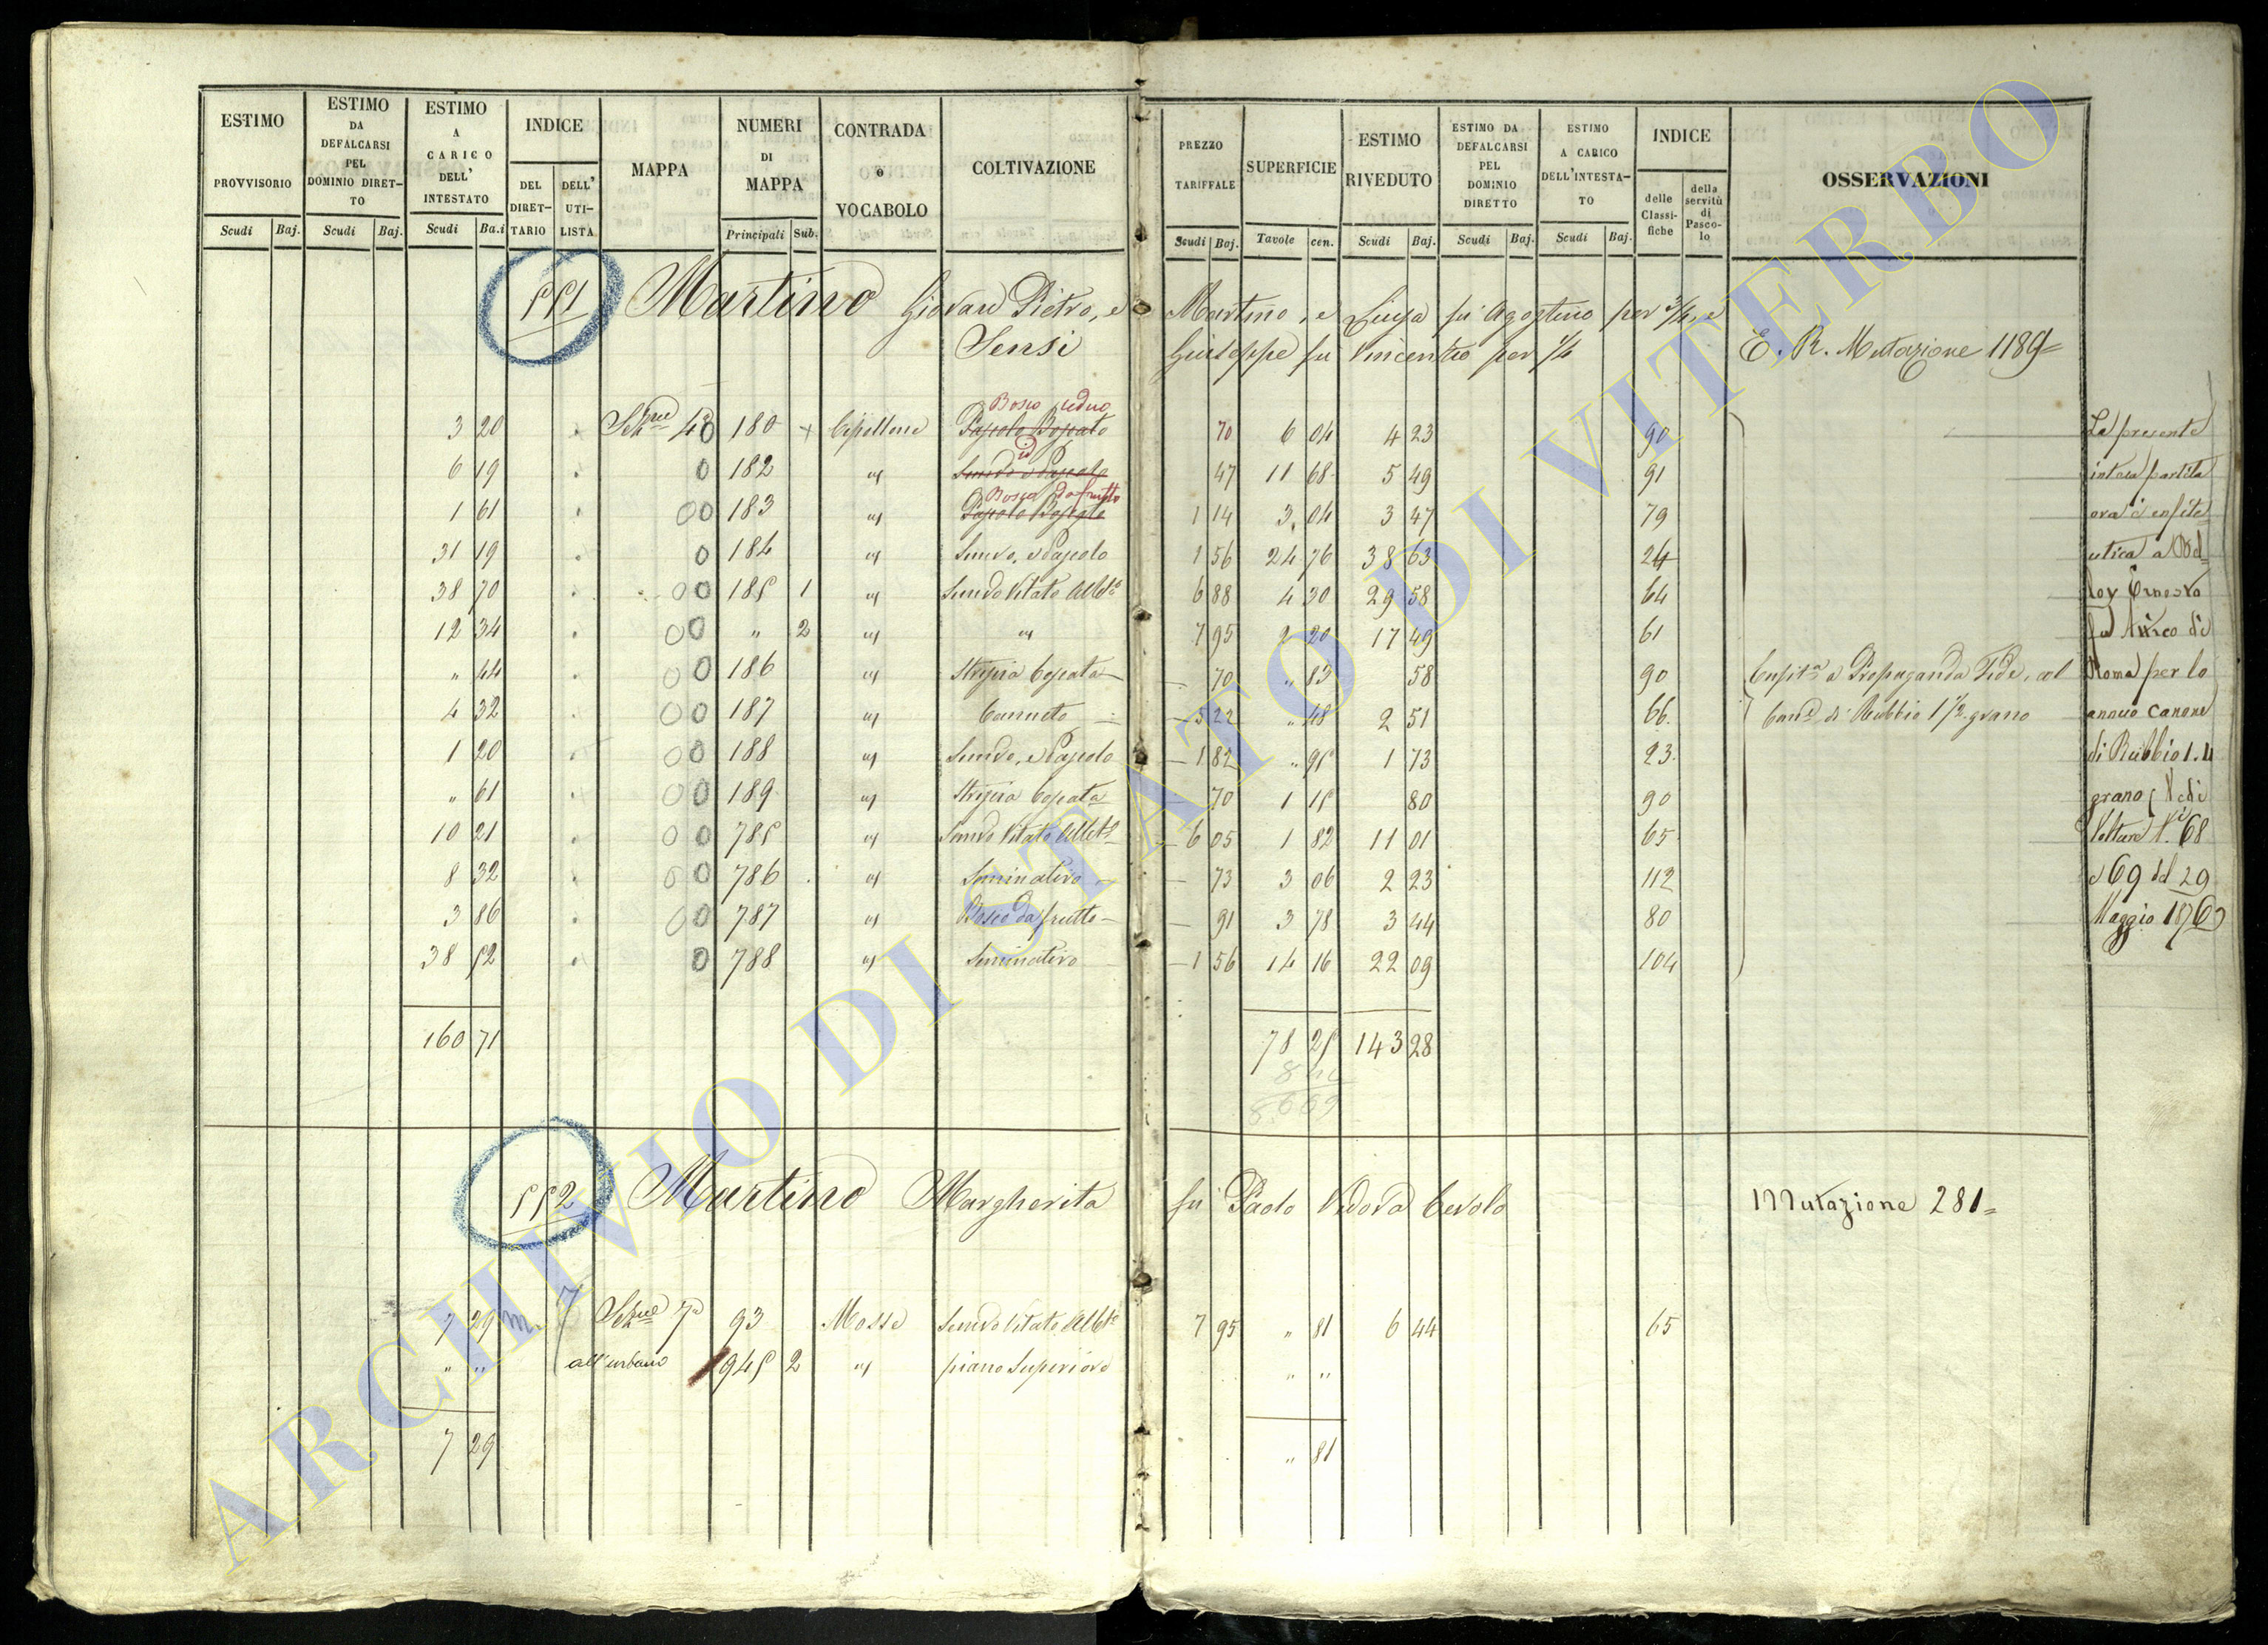 ESTIMO PROVVISORIO
ESTIMO DA DEFALCARSI PEL DOMINIO DIRETTO
ESTIMO A CARICO DELL' INTESTATO
INDICE
DEL DIRETTARIO
DELL' UTILISTA
MAPPA
NUMERI DI MAPPA
CONTRADA o VOCABOLO
COLTIVAZIONE
PREZZO TARIFFALE
SUPERFICIE
ESTIMO RIVEDUTO
ESTIMO DA DEFALCARSI PEL DOMINIO DIRETTO
ESTIMO A CARICO DELL'INTESTATO
INDICE
delle Classifiche
della servitù di Pascolo
OSSERVAZIONI
Scudi Baj. Scudi Baj. Scudi Ba.i Principali Sub.
Scudi Baj. Tavole cen. Scudi Baj. Scudi Baj. Scudi Baj.
551 Martino Giovan Pietro, e Martino, e Luigia fu Agostino per 3/4, e
Sensi Giuseppe fu Vincenzo per 1/4 E. R. Mutazione 1189
Bosco ceduo
3 20 180 Pascolo Boscato 70 6 04 4 23 90
id
6 19 0 182 " Semvo e Pascolo 47 11 68 5 49 91
Bosco da frutto
1 61 00 183 " Pascolo Boscato 1 14 3 04 3 47 79
31 19 0 184 " Semvo, e Pascolo 1 56 24 76 38 63 24
38 70 00 185 1 " Semvo Vitato Albto 6 88 4 30 29 58 64
12 34 00 " 2 " " 7 95 2 20 17 49 61
" 44 00 186 " Striscia Cespata 70 " 83 58 90
4 32 00 187 " Canneto 5 22 " 48 2 51 66
1 20 00 188 " Semvo, e Pascolo 1 82 " 95 1 73 23
" 61 00 189 " Striscia Cespata 70 1 15 80 90
10 21 00 785 " Semvo Vitato Albto 6 05 1 82 11 01 65
8 32 00 786 " Seminativo 73 3 06 2 23 112
3 86 00 787 " Bosco da frutto 91 3 78 3 44 80
38 52 0 788 " Seminativo 1 56 14 16 22 09 104
160 71 78 25 143 28
Enfita a Propaganda Fide, col
Cane di Rubbio 1 1/2 grano
La presente
intera partita
ora è enfite
utica a
Ernesto
fu di
Roma per lo
annuo canone
di Rubbio 1.4
grano
Volture N.i 68
e 69 del 29
Maggio 1876
552 Martino Margherita fu Paolo Vedova Cevolo Mutazione 281
7 29 Sezne 7a 93 Mosse Semvo Vitato Albto 7 95 " 81 6 44 65
" " all'urbano 945 2 " piano Superiore " "
7 29 " 81
ARCHIVIO DI STATO DI VITERBO